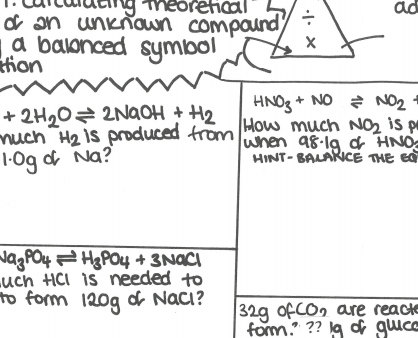 1. Calculating theoretical
of an unknown compound
a balanced symbol
÷
x
ad
+ 2H₂O ⇌ 2NaOH + H₂
much H₂ is produced from
1.0g of Na?
HNO₃ + NO ⇌ NO₂ +
How much NO₂ is p
when 98.1g of HNO₃
HINT - BALANCE THE EQ
Na₃PO₄ ⇌ H₃PO₄ + 3NaCl
much HCl is needed to
to form 120g of NaCl?
32g of CO₂ are react
form? ?? 1g of gluco